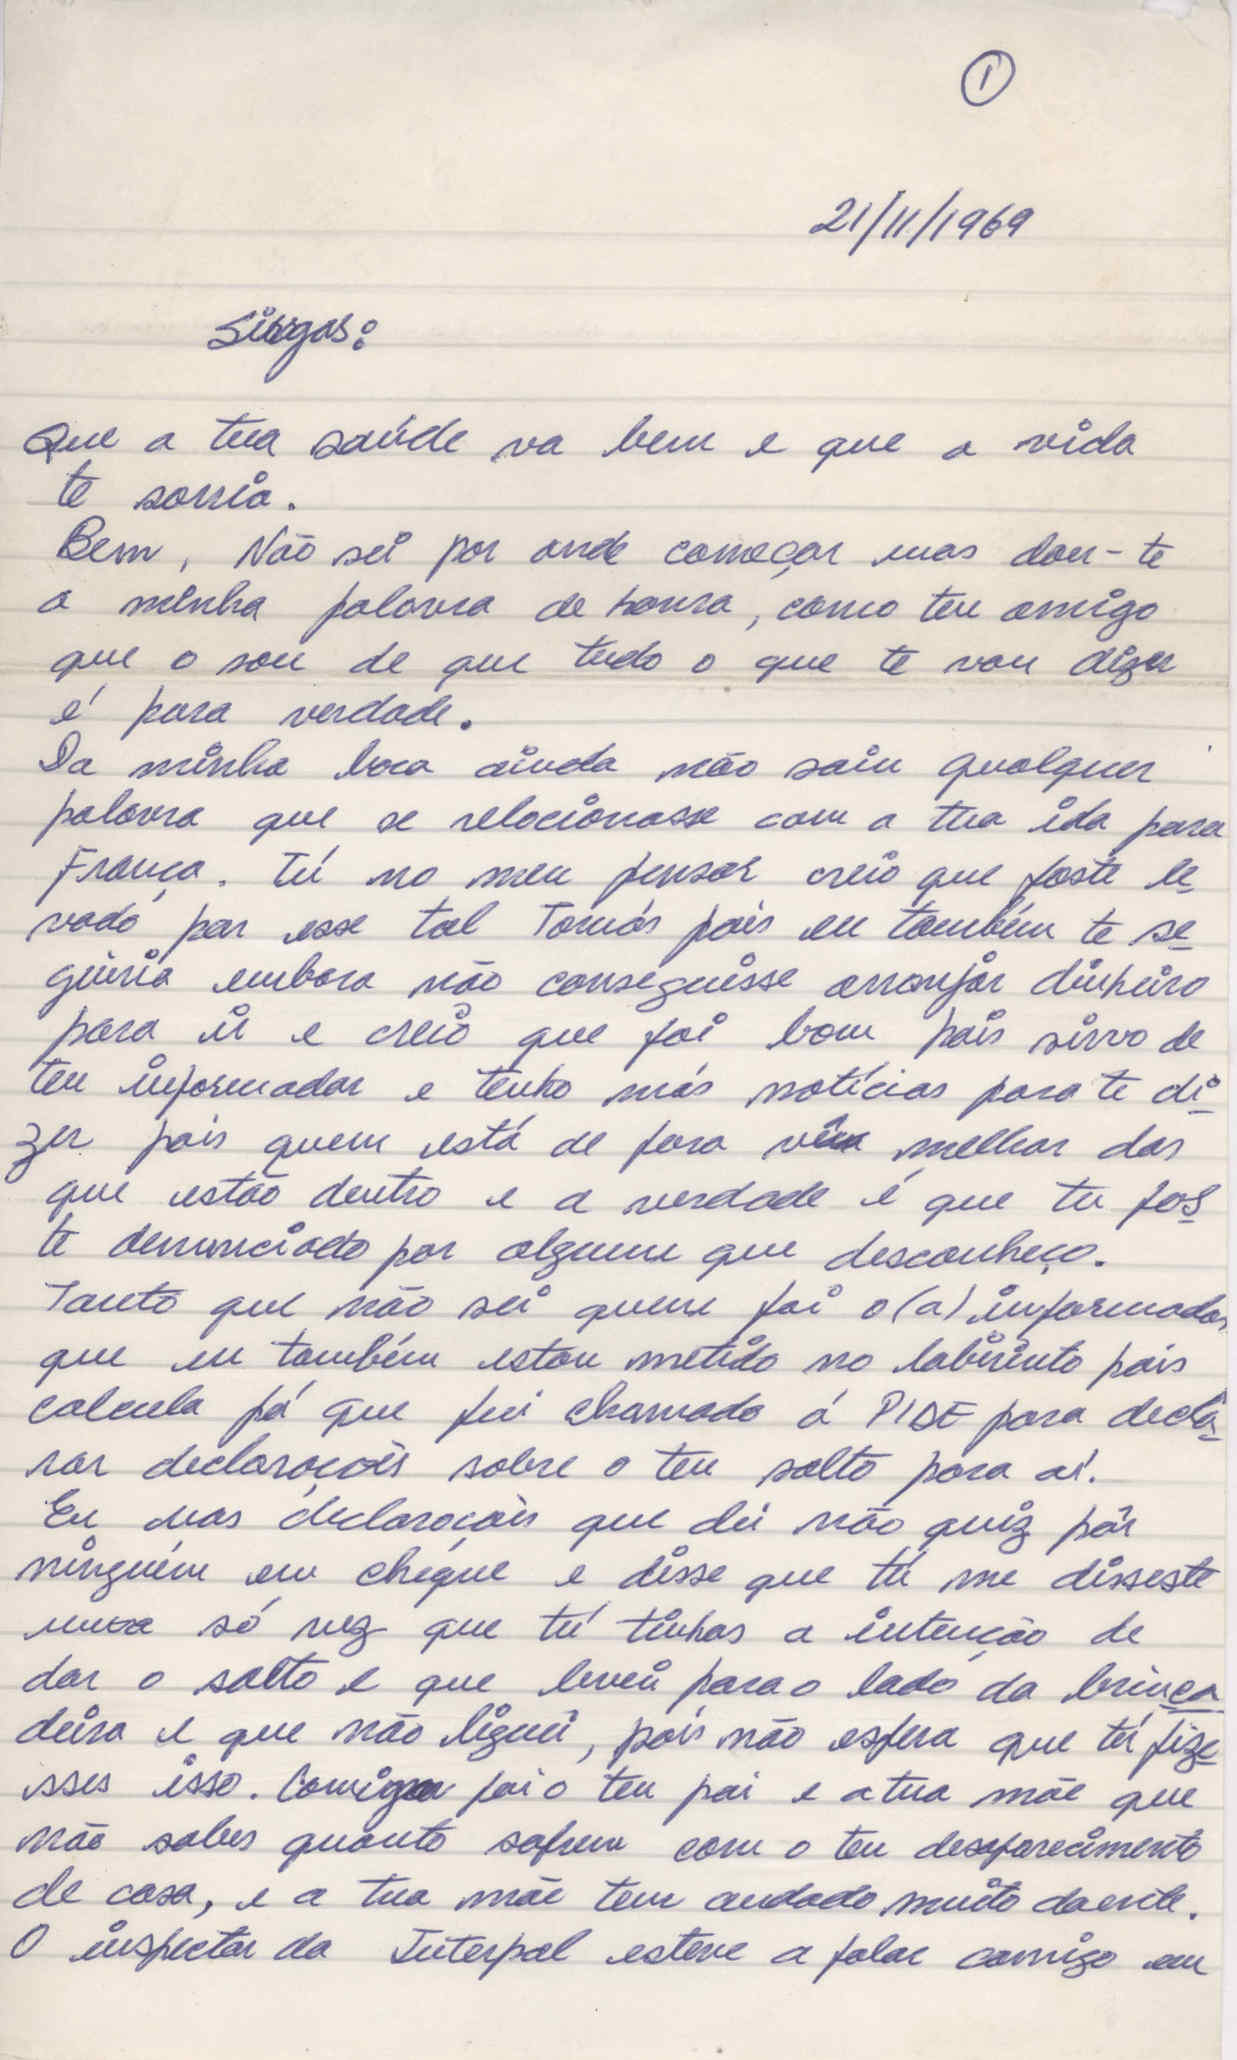 1
21/11/1969
Que a tua saúde va bem e que a vida
te sorria.
Bem, Não sei por onde começar mas dou-te
a minha palavra de honra, como teu amigo
que o sou de que tudo o que te vou dizer
é para verdade.
Da minha boca ainda não saiu qualquer
palavra que se relacionasse com a tua ida para
França. Tú no meu pensar creio que foste le-
vado por esse tal Tomás pois eu também te se-
guiria embora não conseguisse arranjar dinheiro
para ir e creio que foi bom pois sirvo de
teu informador e tenho más notícias para te di-
zer pois quem está de fora vê melhor dos
que estão dentro e a verdade é que tu fos-
te denunciado por alguem que desconheço.
Tanto que não sei quem foi o(a) informador
que eu também estou metido no labirinto pois
calcula já que fui chamado á PIDE para decla-
rar declarações sobre o teu salto para aí.
Eu nas declaraçois que dei não quiz pôr
ninguém em cheque e disse que tú me disseste
uma só vez que tú tinhas a intenção de
dar o salto e que levei para o lado da brinca-
deira e que não liguei, pois não espera que tú fize-
sses isso. Comigo foi o teu pai e a tua mãe que
não sabes quanto sofrem com o teu desaparecimento
de casa, e a tua mãe tem andado muito doente.
O inspector da Interpol esteve a falar comigo em